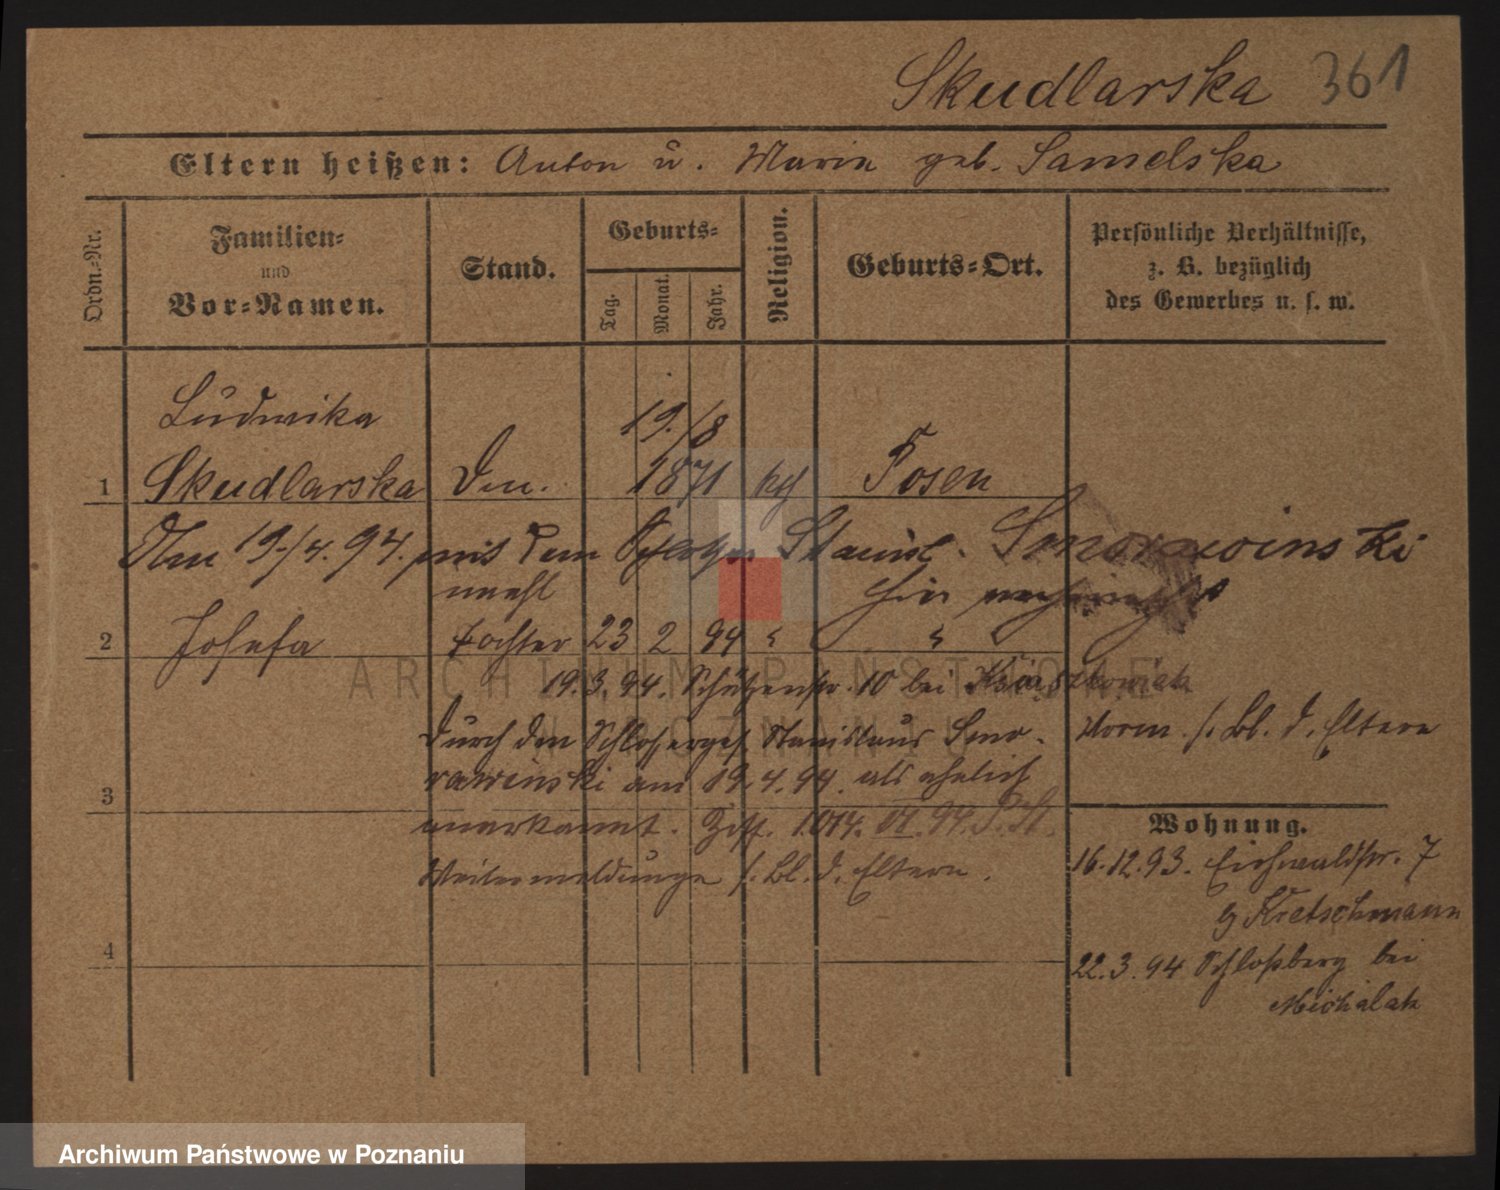 Skudlarska 361
Eltern heißen: Anton u. Maria geb. Samelska
Ordn.-Nr.
Familien-
und
Vor-Namen.
Stand.
Geburts-
Tag.
Monat.
Jahr.
Religion.
Geburts-Ort.
Persönliche Verhältnisse,
z. B. bezüglich
des Gewerbes u. s. w.
Ludwika 19./8
1 Skudlarska 1871 kth Posen
Am 19./4. 94. mit dem Stanisl. Smorawinski
unehl hier verheirathet
2 Josefa Tochter 23 2 94 " "
19.3.94. Schützenstr. 10 bei Książkowiak
durch den Schlosserges. Stanislaus Smo- Vorm. s. Bl. d. Eltern
rawinski am 19.4.94. als ehelich
3
anerkannt. 1014. VI. 94.
Weitermeldungen s. Bl. d. Eltern.
4
Wohnung.
16.12.93. Eichwaldstr. 7
b Kretschmann
22.3.94 Schloßberg bei
Michalak
ARCHIWUM PAŃSTWOWE
W POZNANIU
Archiwum Państwowe w Poznaniu